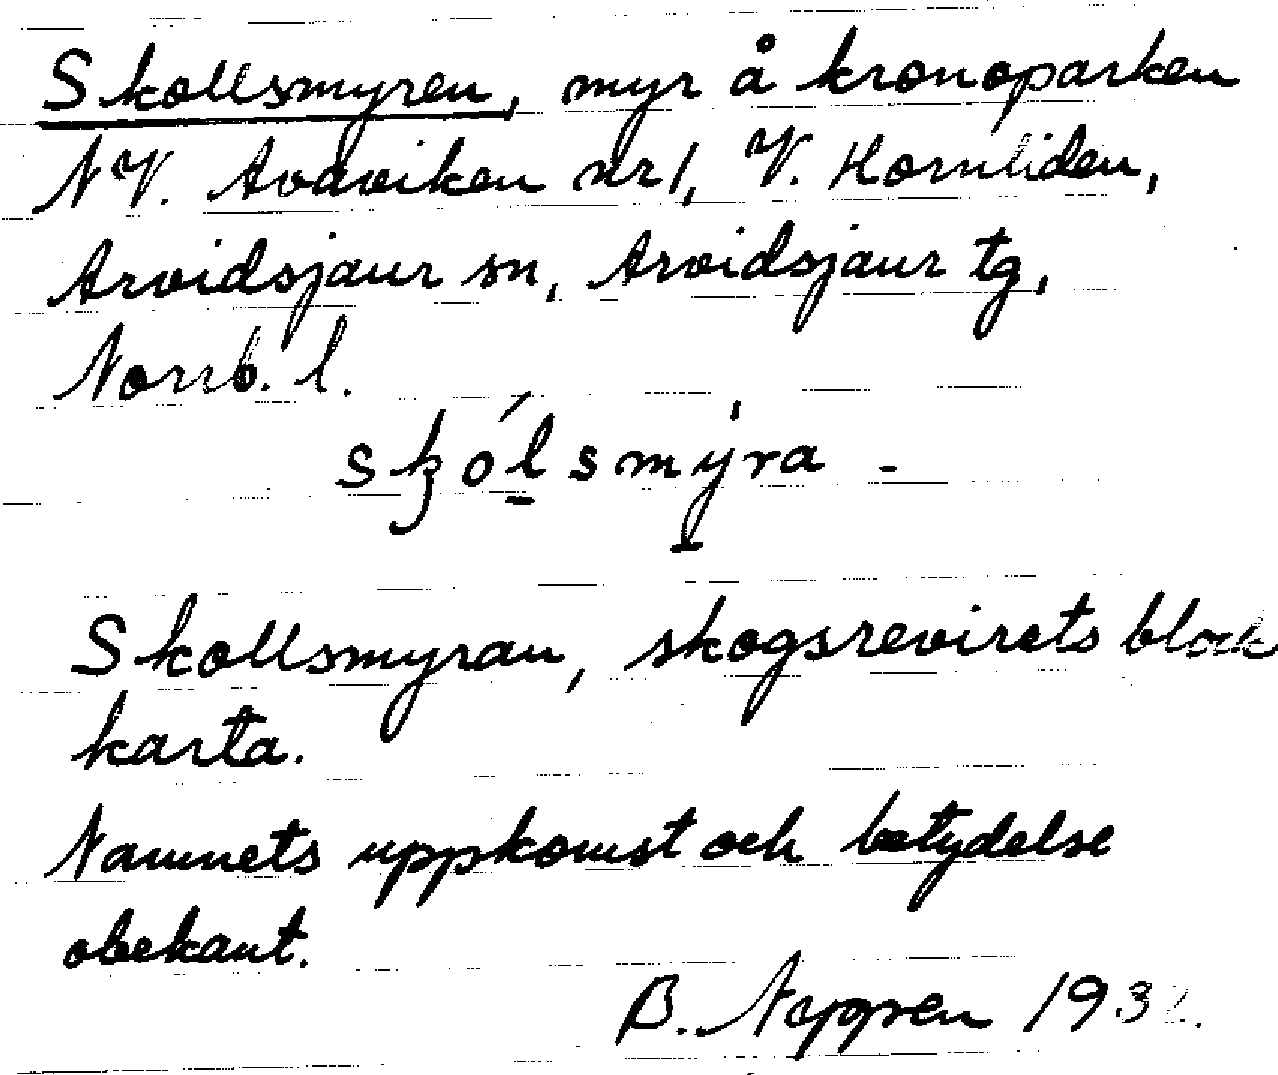 Skollsmyren, myr å kronoparken
NV. Avaviken nr 1, V. Hornliden,
Arvidsjaur sn, Arvidsjaur tg,
Norrb. l.
skó̀lsmyra -
Skollsmyran, skogsrevirets block
karta.
Namnets uppkomst och betydelse
obekant.
B. Nygren